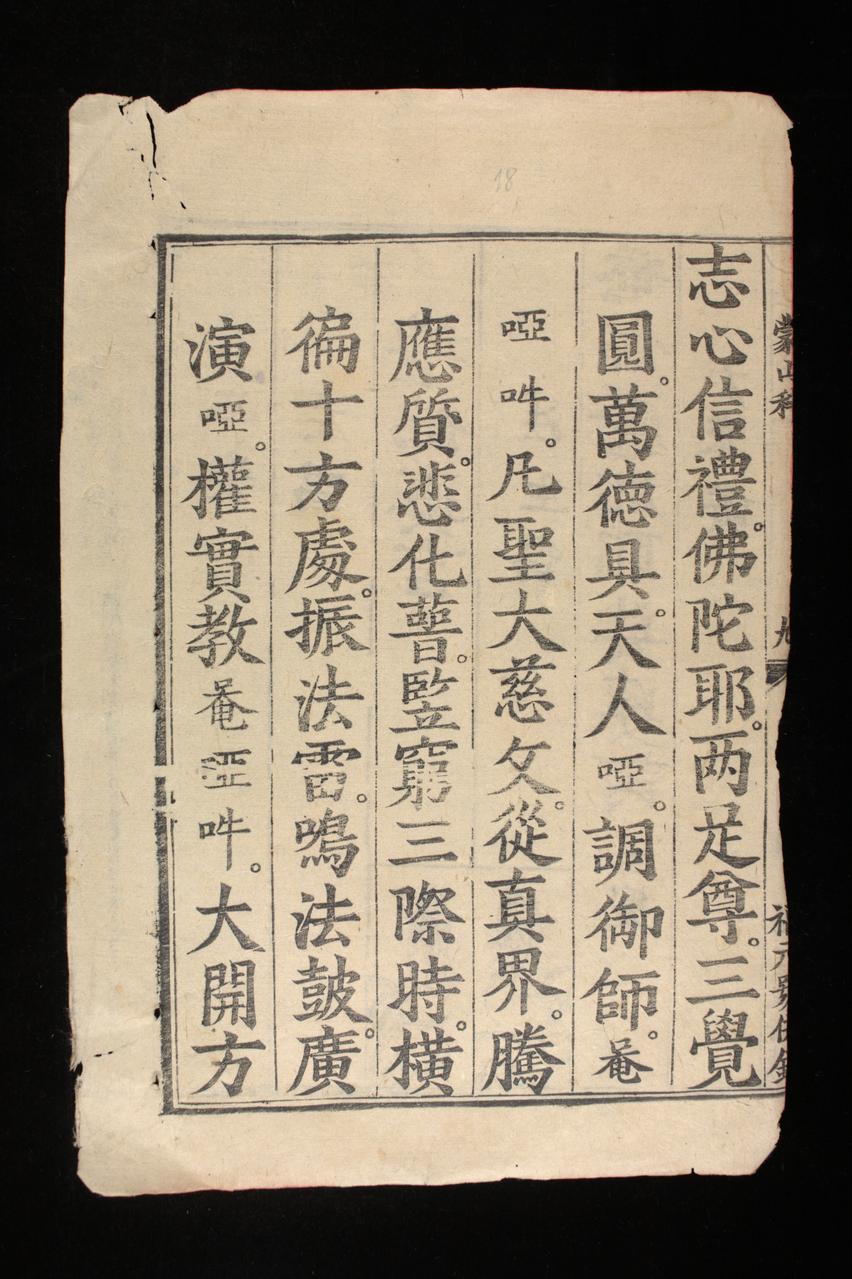 蒙山科　九
志心信禮。佛陀耶。两足尊。三覺
圓。萬德具。天人啞。調御師。菴
啞吽。凡聖大慈父。從真界。騰
應質。悲化普。竪窮三際時。橫
徧十方處。振法雷。鳴法皷。廣
演啞。權實教菴啞吽。大開方
18